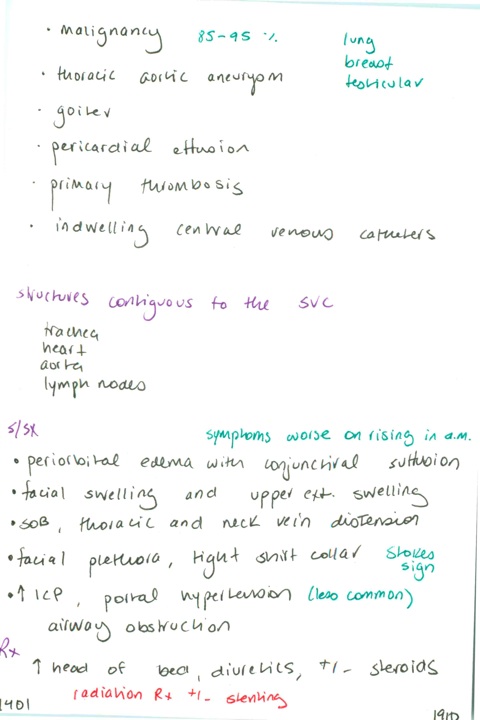 • malignancy 85-95 % lung
breast
• thoracic aortic aneurysm testicular
• goiter
• pericardial effusion
• primary thrombosis
• indwelling central venous catheters
structures contiguous to the SVC
trachea
heart
aorta
lymph nodes
S/SX symptoms worse on rising in a.m.
• periorbital edema with conjunctival suffusion
• facial swelling and upper ext. swelling
• SOB, thoracic and neck vein distension
• facial plethora, tight shirt collar Stokes
sign
• ↑ ICP, portal hypertension (less common)
airway obstruction
Rx
↑ head of bed, diuretics, +/- steroids
radiation Rx +/- stenting
1901 1910